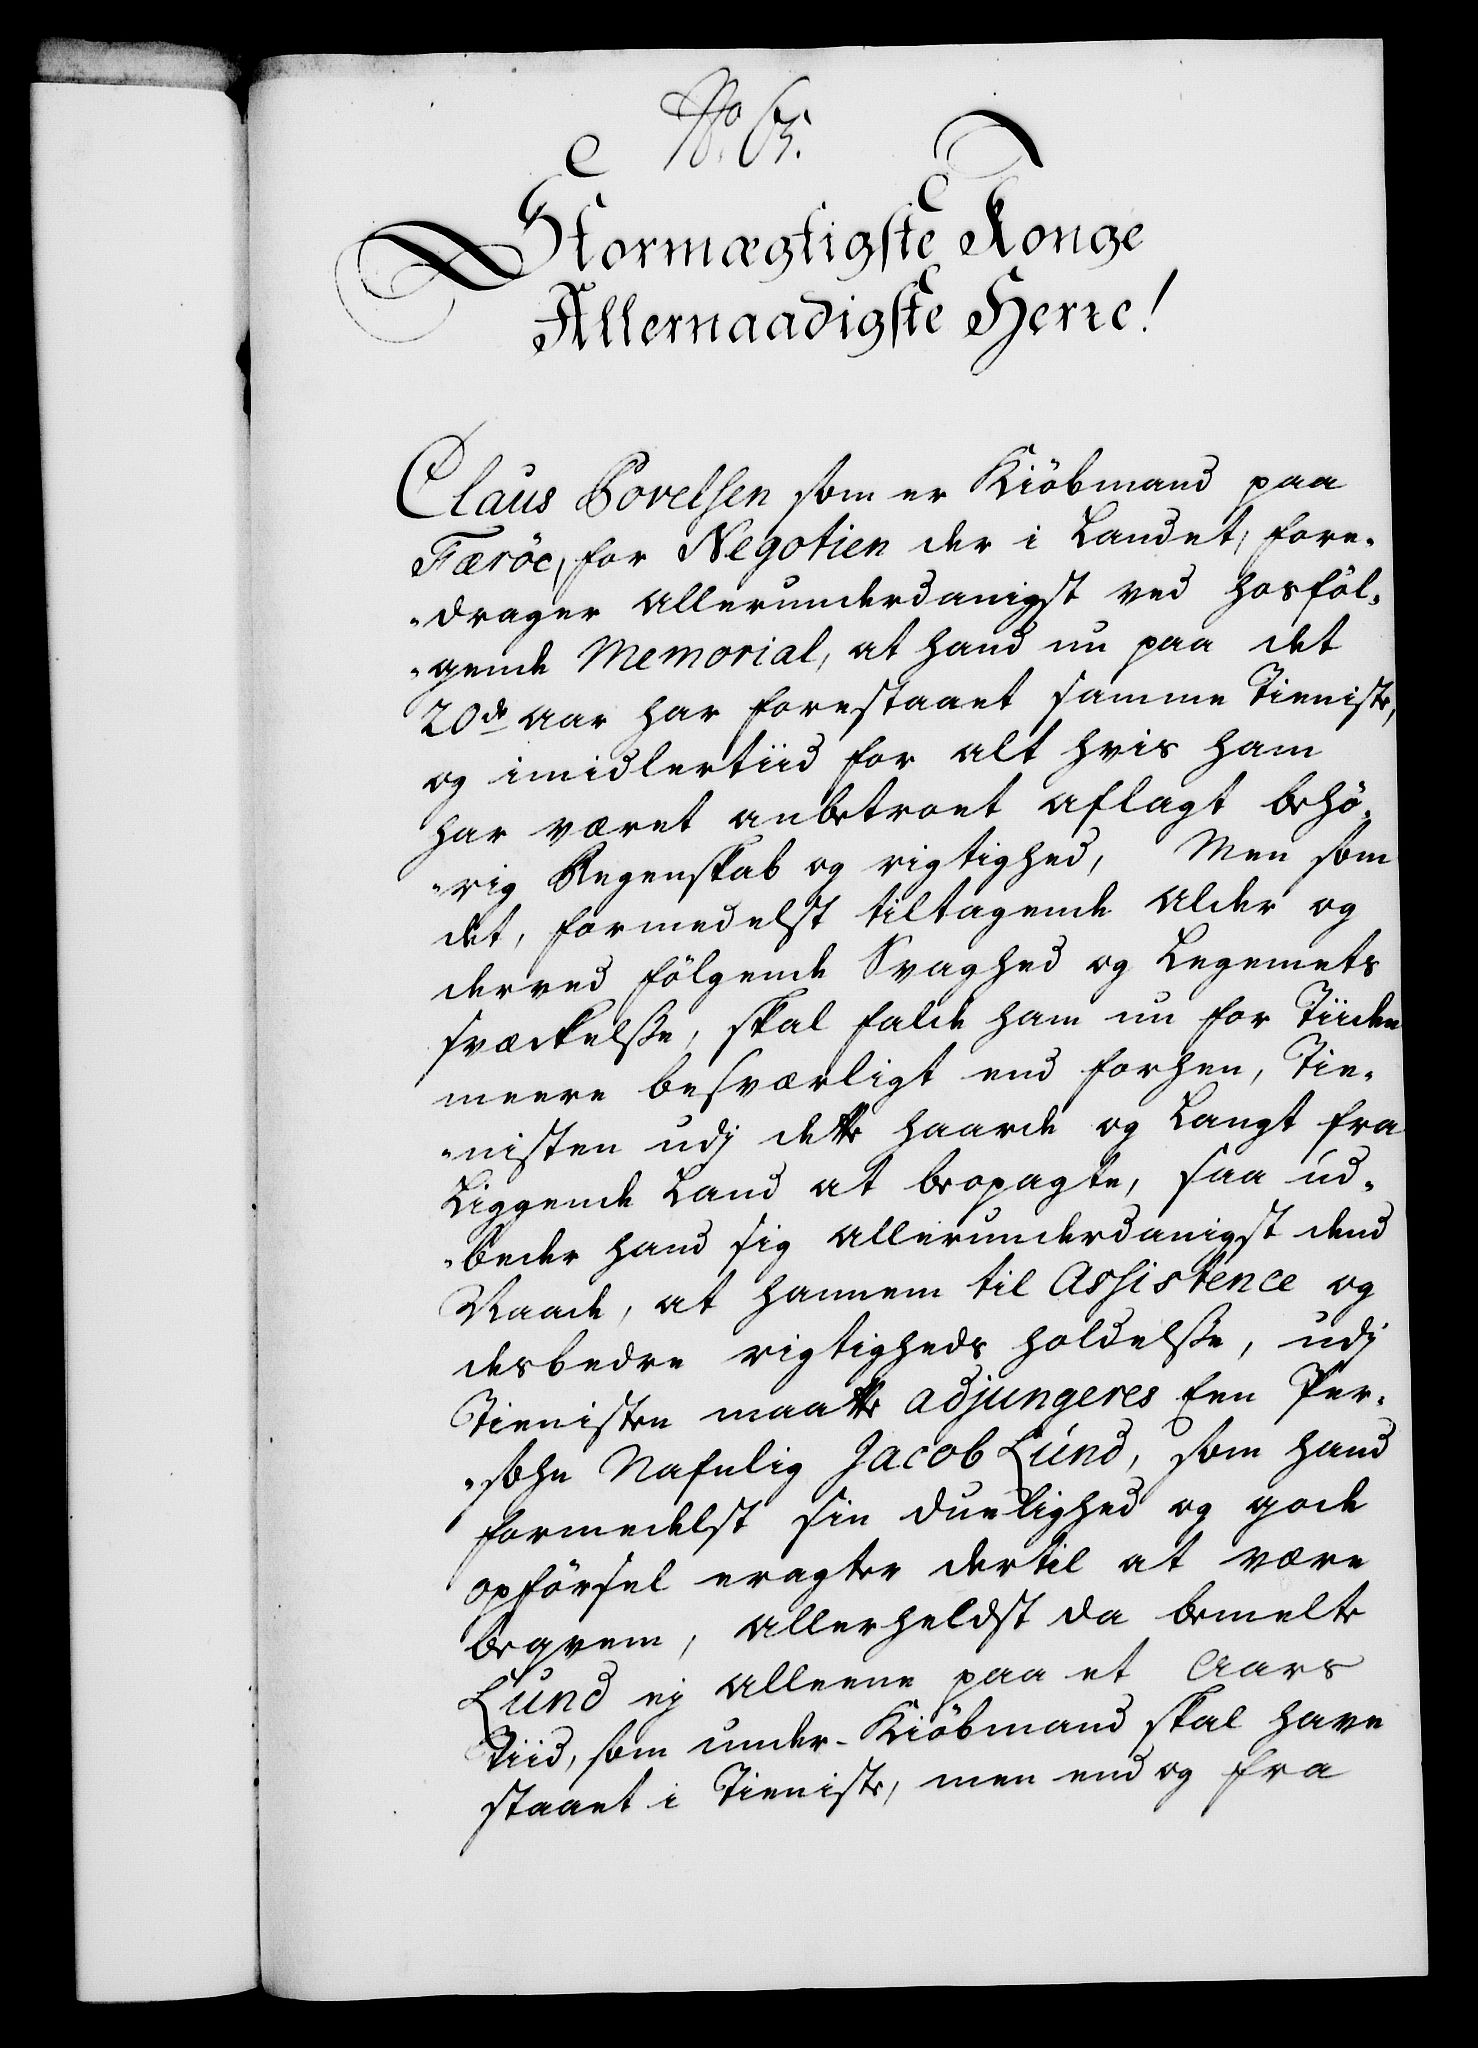 No. 65.
Stormægtigste Konge
Allernaadigste Herre!
Claus Povelsen som er Kiöbmand paa
Færöe, for Negotien der i Landet, fore-
-drager allerunderdanigst ved hosföl-
-gende Memorial, at hand nu paa det
20de aar har forestaaet samme Tieniste,
og imidlertiid for alt hvis ham
har været anbetroet aflagt behö-
-rig Regenskab og rigtighed, Men som
det, formedelst tiltagende alder og
derved fölgende Svaghed og Legemets
svæckelsse, skal falde ham nu for Tiiden
meere besværligt end forhen, Tie-
-nisten udj dette haarde og Langt fra
Liggende Land at beopagte, saa ud-
-beder hand sig allerunderdanigst dend
Naade, at hannem til Assistence og
desbedre rigtigheds holdelsse, udj
Tienisten maatte adjungeres Een Per-
-sohn Nafnlig Jacob Lund, som hand
formedelst sin duelighed og gode
opförsel eragter dertil at være
beqvem, allerheldst da bemelte
Lund ej alleene paa et Aars
Tiid, som under-Kiöbmand skal have
staaet i Tieniste, men end og fra